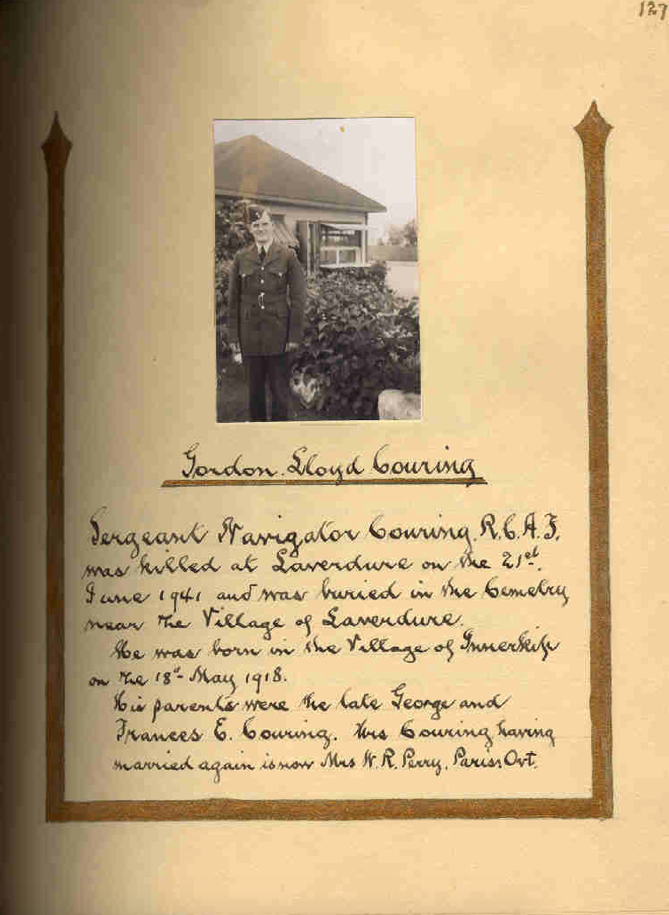 127
Gordon Lloyd Couring
Sergeant Navigator Couring, R.C.A.F.
was killed at Laverdure on the 21st.
June 1941 and was buried in the Cemetry
near the Village of Laverdure.
He was born in the Village of Innerkip
on the 18th May 1918.
His parents were the late George and
Frances E. Couring. Mrs Couring having
married again is now Mrs W. R. Perry, Paris Ont.